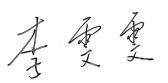 李雯雯